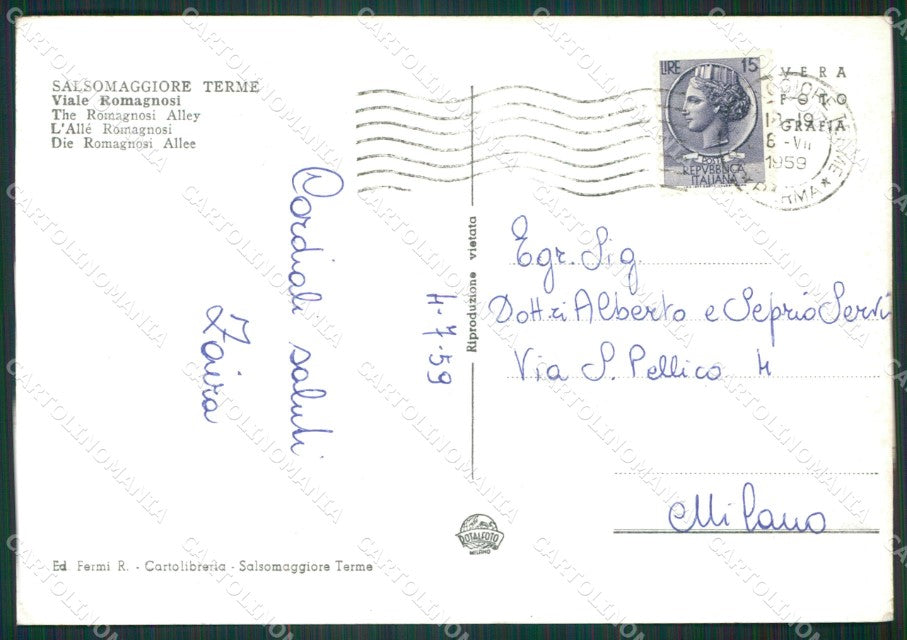 SALSOMAGGIORE TERME
Viale Romagnosi
The Romagnosi Alley
L'Allé Romagnosi
Die Romagnosi Allee
Cordiali saluti
Zaira
4-7-59
Riproduzione vietata
LIRE 15
POSTE
REPVBBLICA
ITALIANA
VERA
FOTO
GRAFIA
8-VII
1959
PARMA
Egr. Sig.
Dott.ri Alberto e Seprio Servi
Via S. Pellico 4
Milano
ROTALFOTO
MILANO
Ed Fermi R. - Cartolibreria - Salsomaggiore Terme
CARTOLINOMANIA